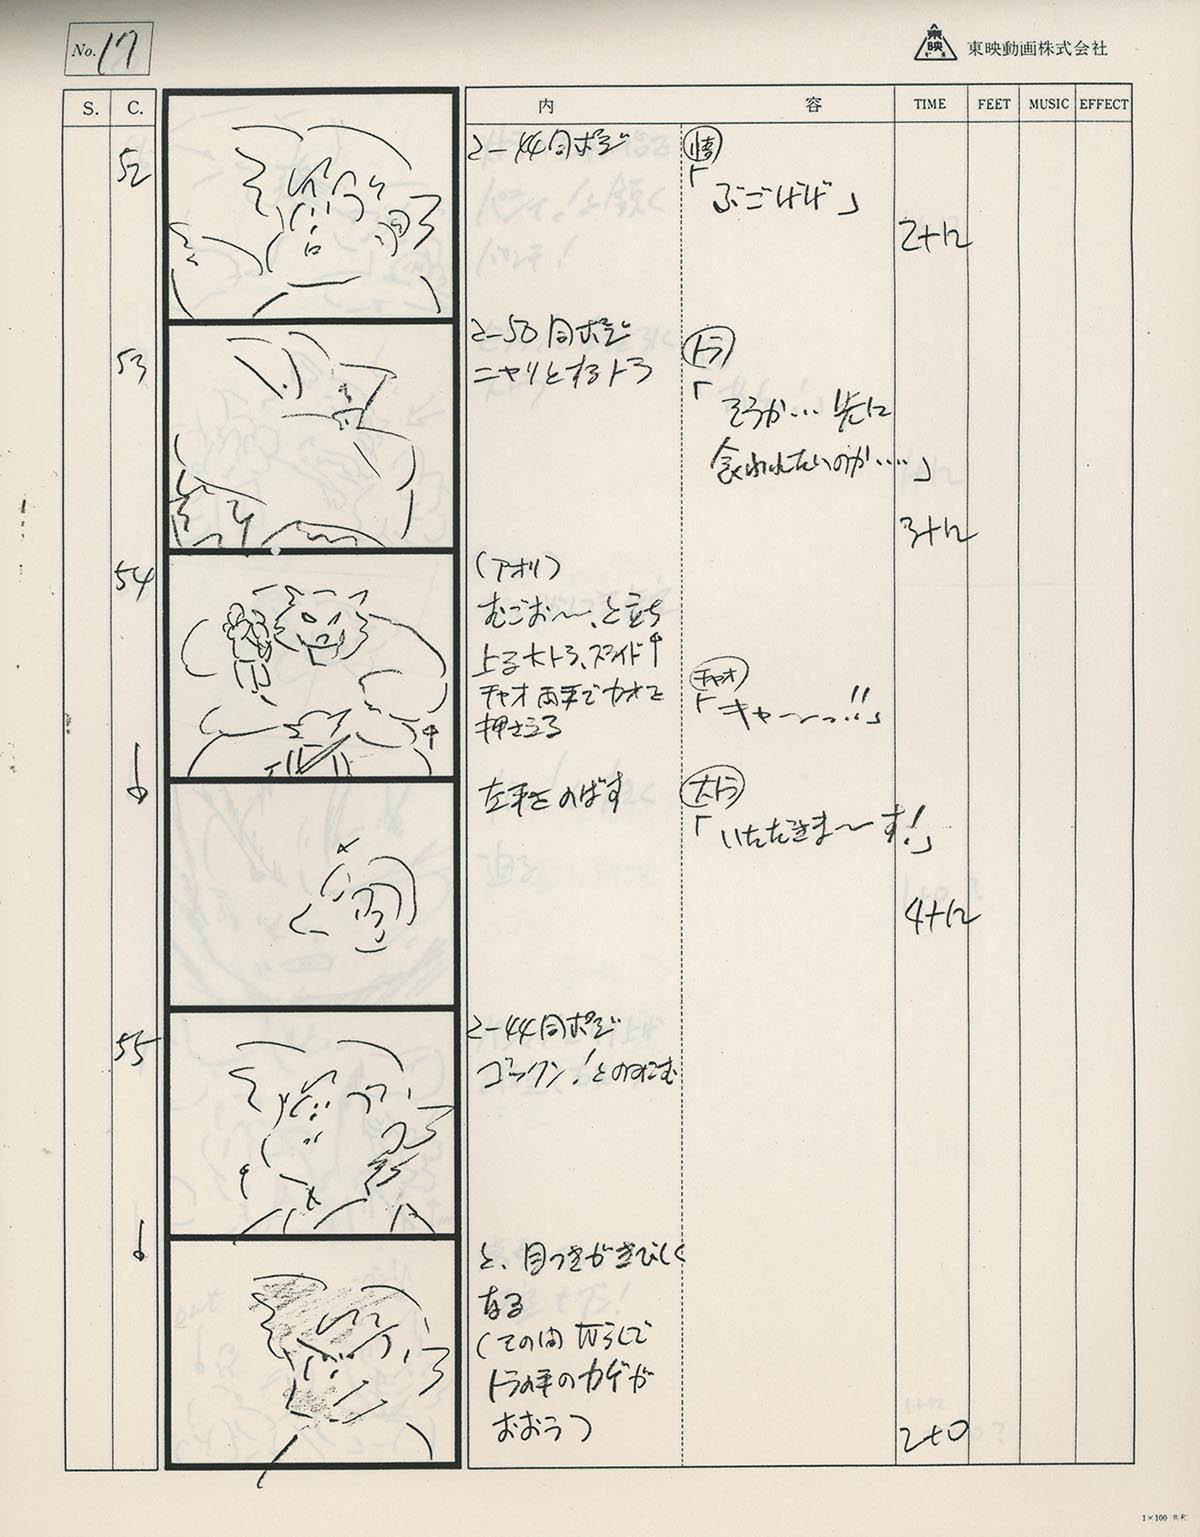 No. 17
東映
東映動画株式会社
S. C. 内 容 TIME FEET MUSIC EFFECT
52
2-44同ポジ
悟
「ぶごげげ」
2+12
53
2-50同ポジ
ニヤリとするトラ
トラ
「そうか…先に
食われたいのか……」
3+12
54
(アオリ)
むごお〜、と立ち
上る大トラ、スライド↑
チャオ両手でカオを
押さえる
チャオ
「キャーーっ!!」
左手をのばす
大トラ
「いただきま〜す!」
4+12
55
2-44同ポジ
ゴックン!とのみこむ
と、目つきがきびしく
なる
(その間 W らしで
トラの手のカゲが
おおう)
2+0
1×100